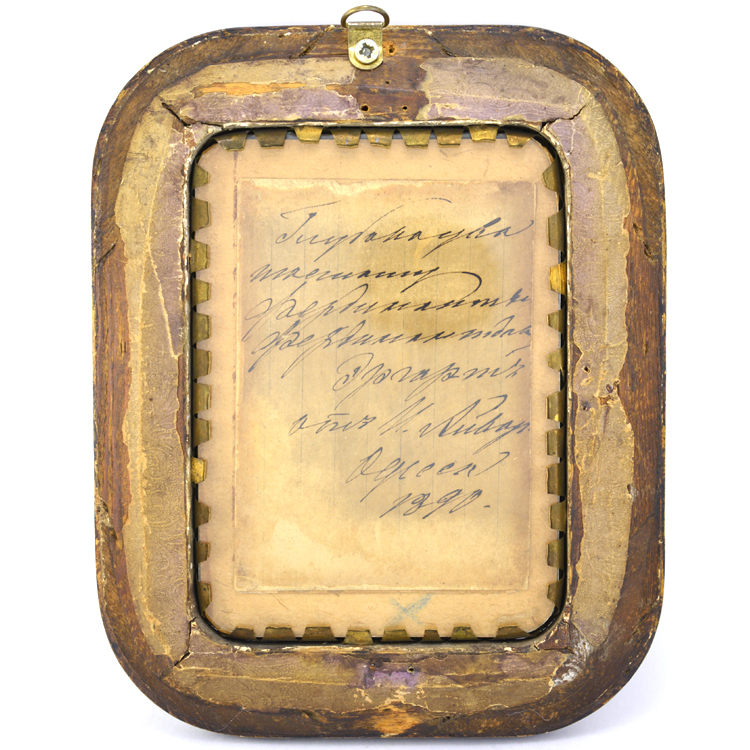 Глубокоува
жаемому
Фердинанту
Фердинантов
Эргардтъ
отъ И. Айваз
Одесса
1890.